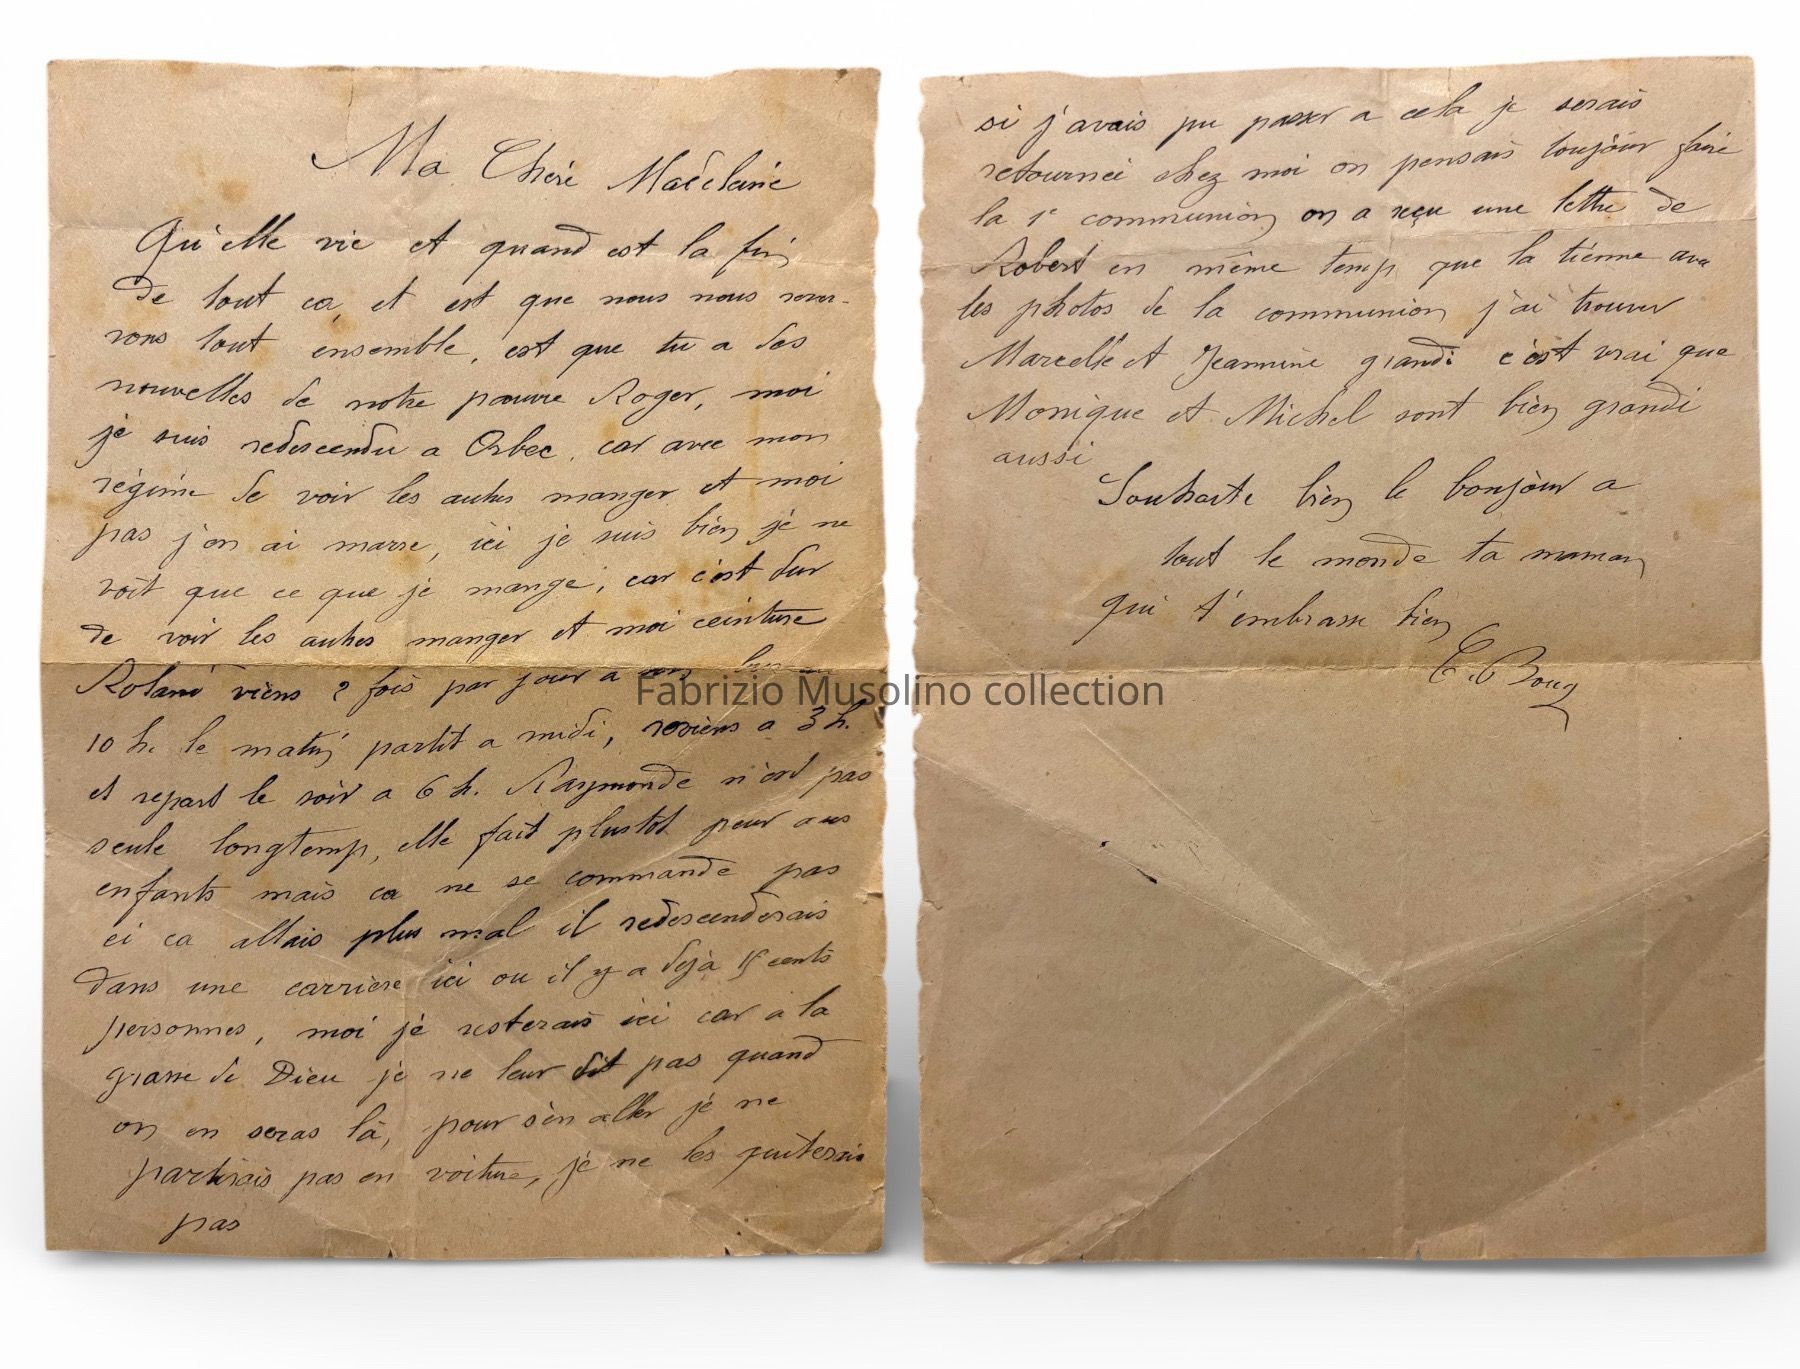 Ma Chère Madeleine
Qu'elle vie et quand est la fin
de tout ca, et est que nous nous rever-
rons tout ensemble, est que tu a des
nouvelles de notre pauvre Roger, moi
je suis redescendu a Orbec, car avec mon
régime de voir les autres manger et moi
pas j'en ai marre, ici je suis bien je ne
voit que ce que je mange, car c'est dur
de voir les autres manger et moi ceinture
Roland viens 2 fois par jour a
10 h. le matin partit a midi, reviens a 3 h.
et repart le soir a 6 h. Raymonde n'est pas
seule longtemp, elle fait plustot peur aus
enfants mais ca ne se commande pas
ci ca allais plus mal il redescenderais
dans une carrière ici ou il y a dejà 15 cents
personnes, moi je resterais ici car a la
grasse de Dieu je ne leur dit pas quand
on en seras là, pour s'en aller je ne
partirais pas en voiture, je ne les quiterais
pas
si j'avais pu passer a cela je serais
retournée chez moi on pensais toujour faire
la 1e communion on a reçu une lettre de
Robert en même temp que la tienne avec
les photos de la communion j'ai trouver
Marcelle et Jeannine grandi c'est vrai que
Monique et Michel sont bien grandi
aussi
Souhaite bien le bonjour a
tout le monde ta maman
qui t'embrasse bien
Fabrizio Musolino collection